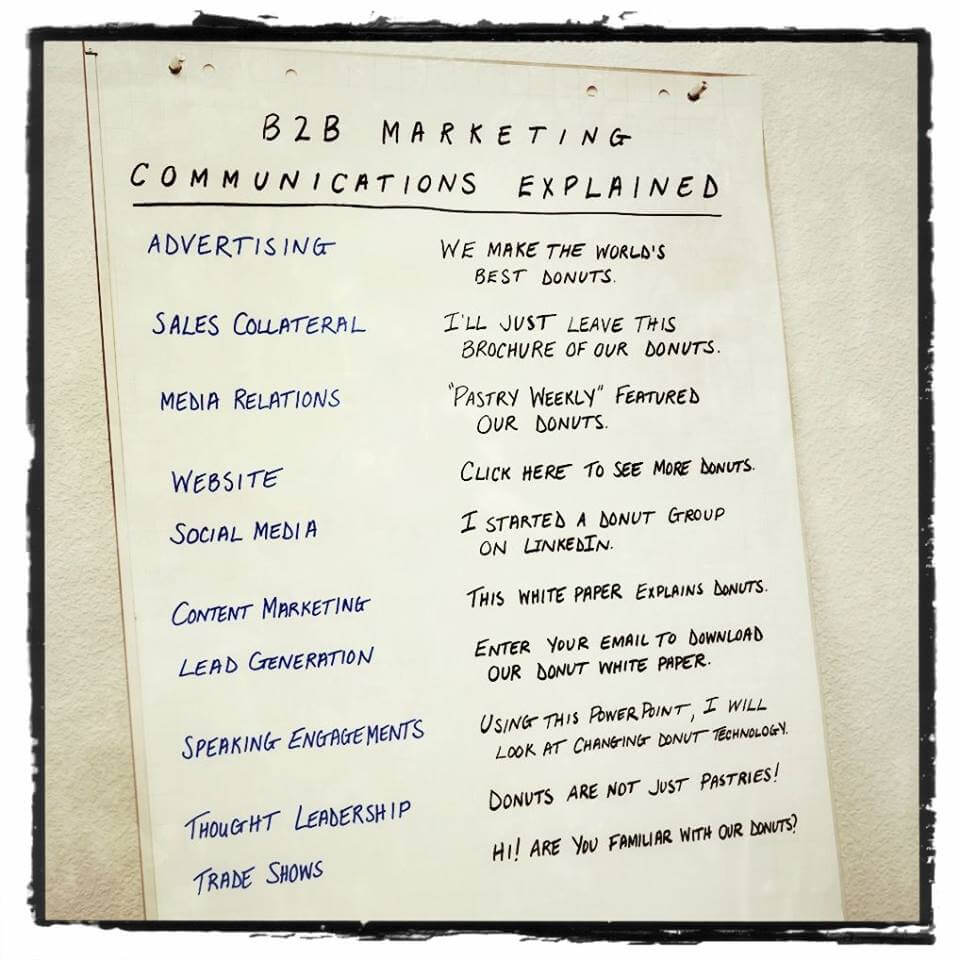 B2B MARKETING
COMMUNICATIONS EXPLAINED
ADVERTISING
WE MAKE THE WORLD'S
BEST DONUTS.
SALES COLLATERAL
I'LL JUST LEAVE THIS
BROCHURE OF OUR DONUTS.
MEDIA RELATIONS
"PASTRY WEEKLY" FEATURED
OUR DONUTS.
WEBSITE
CLICK HERE TO SEE MORE DONUTS.
SOCIAL MEDIA
I STARTED A DONUT GROUP
ON LINKEDIN.
CONTENT MARKETING
THIS WHITE PAPER EXPLAINS DONUTS.
LEAD GENERATION
ENTER YOUR EMAIL TO DOWNLOAD
OUR DONUT WHITE PAPER.
SPEAKING ENGAGEMENTS
USING THIS POWERPOINT, I WILL
LOOK AT CHANGING DONUT TECHNOLOGY.
THOUGHT LEADERSHIP
DONUTS ARE NOT JUST PASTRIES!
TRADE SHOWS
HI! ARE YOU FAMILIAR WITH OUR DONUTS?